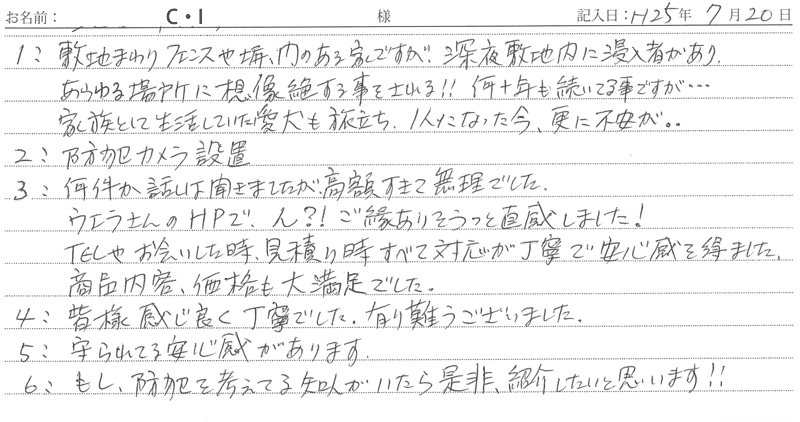 お名前： C・I 様 記入日：H25年 7月20日
1： 敷地まわりフェンスや塀、門のある家ですが、深夜敷地内に侵入者があり、
あらゆる場所に想像絶する事をされる!! 何十年も続いてる事ですが…
家族として生活していた愛犬も旅立ち、1人になった今、更に不安が。。
2： 防犯カメラ設置
3： 何件か話しは聞きましたが、高額すぎて無理でした。
ウエラさんのHPで、ん?! ご縁ありそうっと直感しました!
TELや お会いした時、見積り時 すべて対応が丁寧で安心感を得ました。
商品内容、価格も大満足でした。
4： 皆様 感じ良く丁寧でした。有り難うございました。
5： 守られてる安心感があります。
6： もし、防犯を考えてる知人がいたら是非、紹介したいと思います!!